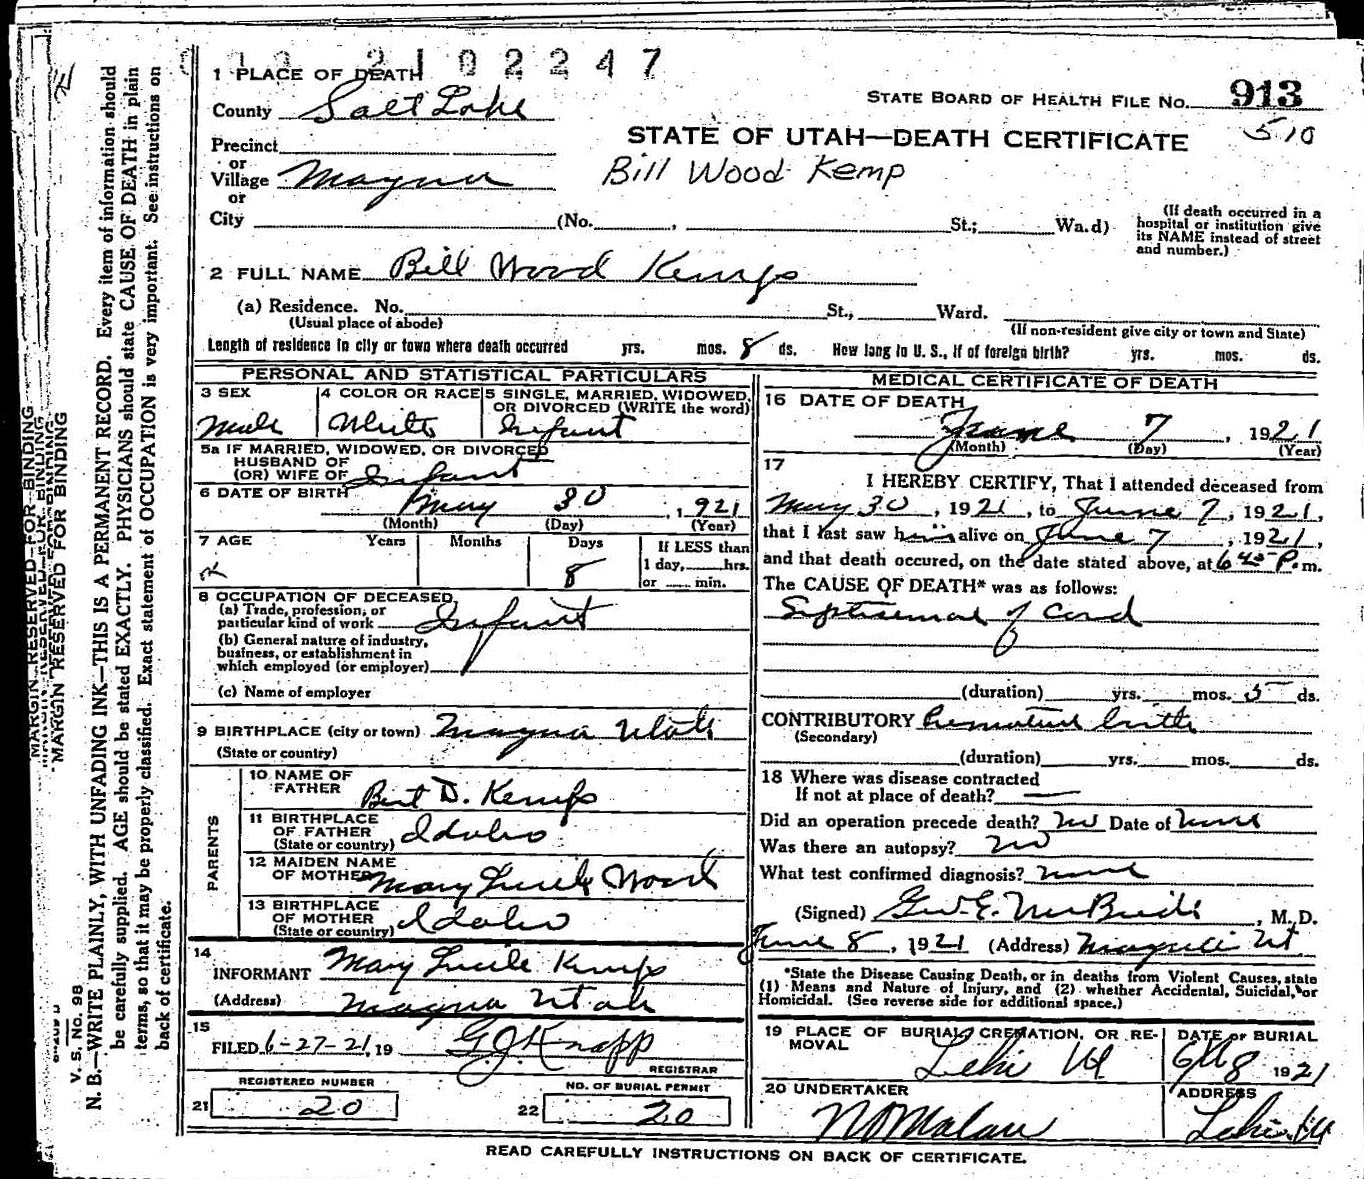 2102247
1 PLACE OF DEATH
County Salt Lake
STATE BOARD OF HEALTH FILE No. 913
510
STATE OF UTAH—DEATH CERTIFICATE
Precinct
or
Village Magna
Bill Wood Kemp
or
City (No. , St.; Wa.d)
(If death occurred in a
hospital or institution give
its NAME instead of street
and number.)
2 FULL NAME Bill Wood Kemp
(a) Residence. No. St., Ward.
(Usual place of abode)
(If non-resident give city or town and State)
Length of residence in city or town where death occurred yrs. mos. 8 ds. How long in U. S., if of foreign birth? yrs. mos. ds.
PERSONAL AND STATISTICAL PARTICULARS
3 SEX
Male
4 COLOR OR RACE
White
5 SINGLE, MARRIED, WIDOWED,
OR DIVORCED (WRITE the word)
Infant
5a IF MARRIED, WIDOWED, OR DIVORCED
HUSBAND OF
(OR) WIFE OF Infant
6 DATE OF BIRTH May 30, 1921
(Month) (Day) (Year)
7 AGE Years Months Days
8
If LESS than
1 day, hrs.
or min.
8 OCCUPATION OF DECEASED
(a) Trade, profession, or
particular kind of work Infant
(b) General nature of industry,
business, or establishment in
which employed (or employer)
(c) Name of employer
9 BIRTHPLACE (city or town) Magna Utah
(State or country)
PARENTS
10 NAME OF
FATHER Burt D. Kemp
11 BIRTHPLACE
OF FATHER
(State or country) Idaho
12 MAIDEN NAME
OF MOTHER Mary Lucile Wood
13 BIRTHPLACE
OF MOTHER
(State or country) Idaho
14
INFORMANT Mary Lucile Kemp
(Address) Magna Utah
15
FILED 6-27-21, 19 G J Knapp
REGISTRAR
REGISTERED NUMBER
21 20
NO. OF BURIAL PERMIT
22 20
MEDICAL CERTIFICATE OF DEATH
16 DATE OF DEATH
June 7, 1921
(Month) (Day) (Year)
17
I HEREBY CERTIFY, That I attended deceased from
May 30, 1921, to June 7, 1921,
that I last saw him alive on June 7, 1921,
and that death occured, on the date stated above, at 6 45 P.m.
The CAUSE OF DEATH* was as follows:
of Cord
(duration) yrs. mos. 5 ds.
CONTRIBUTORY Premature birth
(Secondary)
(duration) yrs. mos. ds.
18 Where was disease contracted
If not at place of death?
Did an operation precede death? No Date of none
Was there an autopsy? No
What test confirmed diagnosis? none
(Signed) Geo. E. McBride, M. D.
June 8, 1921 (Address) Magna Ut
*State the Disease Causing Death, or in deaths from Violent Causes, state
(1) Means and Nature of Injury, and (2) whether Accidental, Suicidal, or
Homicidal. (See reverse side for additional space.)
19 PLACE OF BURIAL, CREMATION, OR RE-
MOVAL
Lehi Ut
DATE OF BURIAL
6/8 1921
20 UNDERTAKER
ADDRESS
Lehi Ut
READ CAREFULLY INSTRUCTIONS ON BACK OF CERTIFICATE.
MARGIN RESERVED FOR BINDING
V. S. No. 98
N. B.—WRITE PLAINLY, WITH UNFADING INK—THIS IS A PERMANENT RECORD. Every item of information should
be carefully supplied. AGE should be stated EXACTLY. PHYSICIANS should state CAUSE OF DEATH in plain
terms, so that it may be properly classified. Exact statement of OCCUPATION is very important. See instructions on
back of certificate.